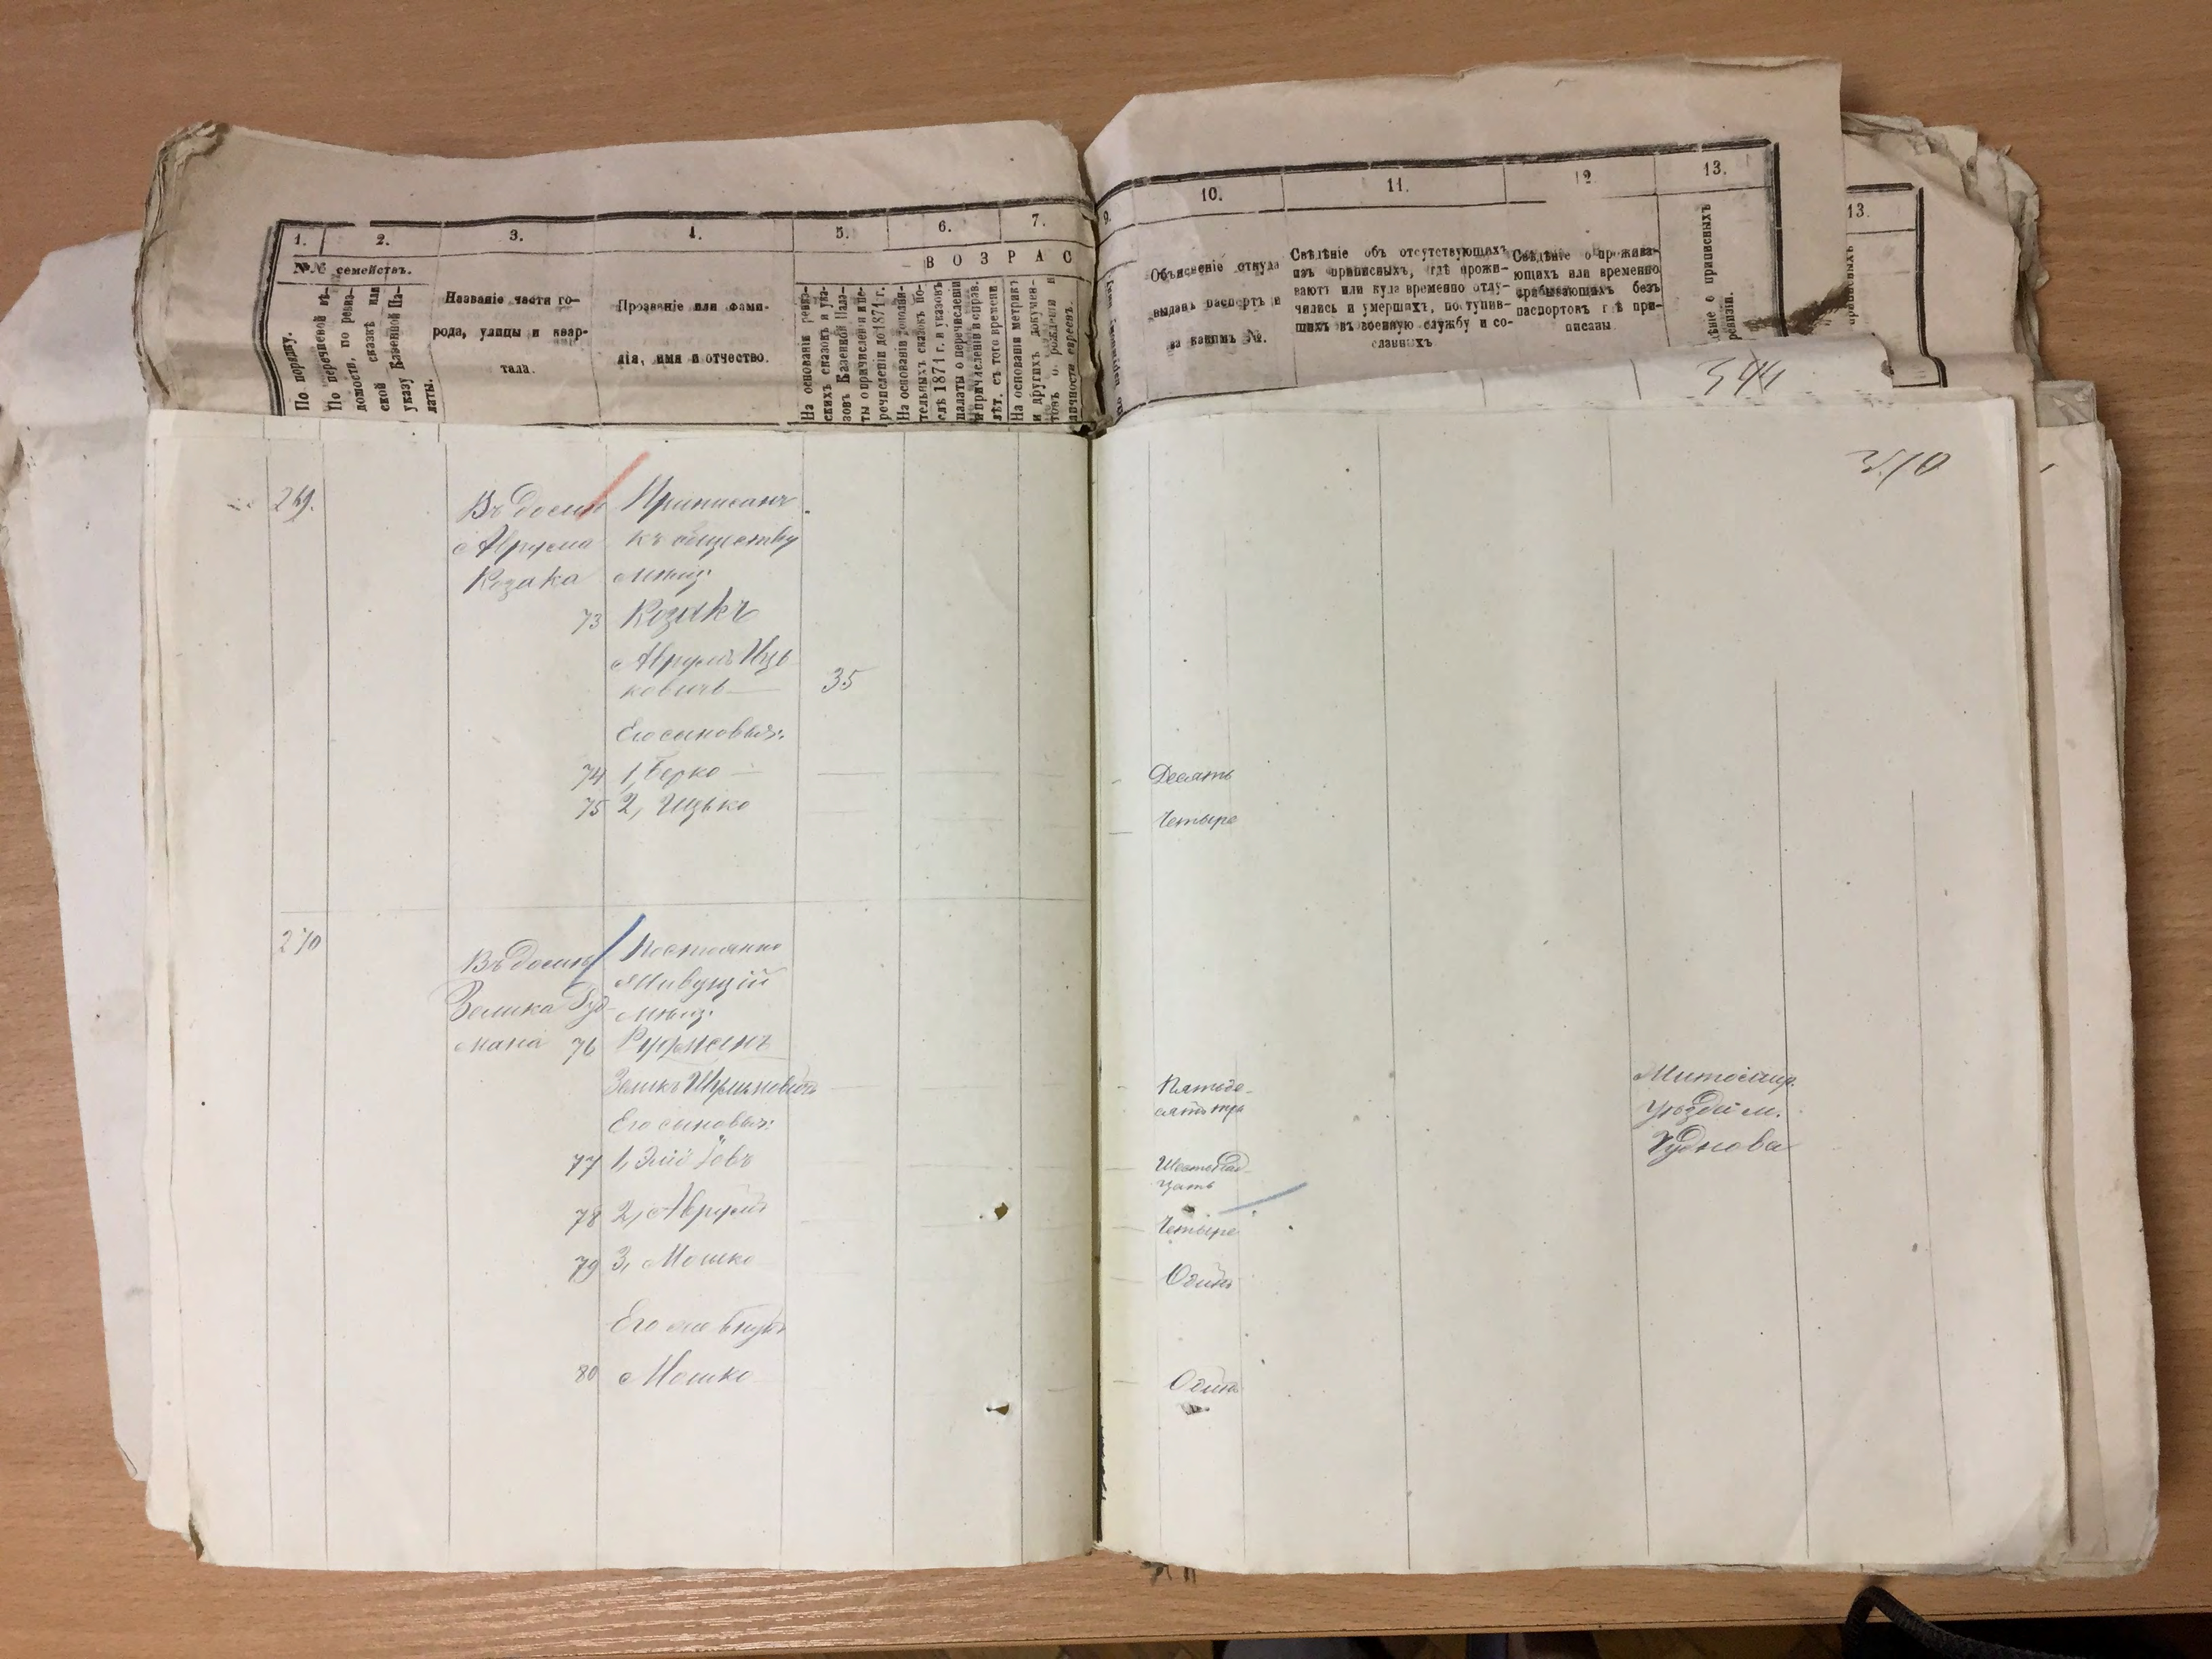 1.
2.
3.
4.
5.
6.
7.
№№ семействъ.
ВОЗРАС
По порядку.
По перечневой вѣ-
домости, по ревиз-
ской сказкѣ или
указу Казенной Па-
латы.
Названіе части го-
рода, улицы и квар-
тала.
Прозваніе или фами-
лія, имя и отчество.
На основаніи ревиз-
скихъ сказокъ и ука-
зовъ Казенной Пала-
ты о причисленіи и пе-
речисленіи до 1871 г.
На основаніи дополни-
тельныхъ сказокъ по-
слѣ 1871 г. и указовъ
палаты о перечисленіи
и причисленіи и справ.
лѣт. съ того времени.
На основаніи метрикъ
и другихъ докумен-
товъ о рожденіи и
личности евреевъ.
9.
10.
11.
12.
13.
Объясненіе откуда
выданъ паспортъ и
за какимъ №.
Свѣдѣніе объ отсутствующихъ
изъ приписныхъ, гдѣ прожи-
ваютъ или куда временно отлу-
чились и умершихъ, поступив-
шихъ въ военную службу и со-
сланныхъ
Свѣдѣніе о прожива-
ющихъ или временно
пребывающихъ безъ
паспортовъ гдѣ при-
писаны
о приписныхъ
ревизіи.
13.
344
269.
Въ домѣ
Аврума
Козака
Приписанъ
къ обществу
мѣщ.
73 Козакъ
Аврумъ Иць
ковичъ
35
Его сыновья:
74 1, Берко
Десять
75 2, Ицько
Четыре
270
Въ домѣ
Зелика
мана
Постоянно
Живущій
мѣщ.
76
Его сыновья:
Пятьде-
сятъ три
Житомир.
уѣзда м.
Чуднова
77 1,
Шестнад-
цать
78 2, Аврумъ
Четыре
79 3, Мошко
Одинъ
Его же внукъ
80 Мошко
Одинъ